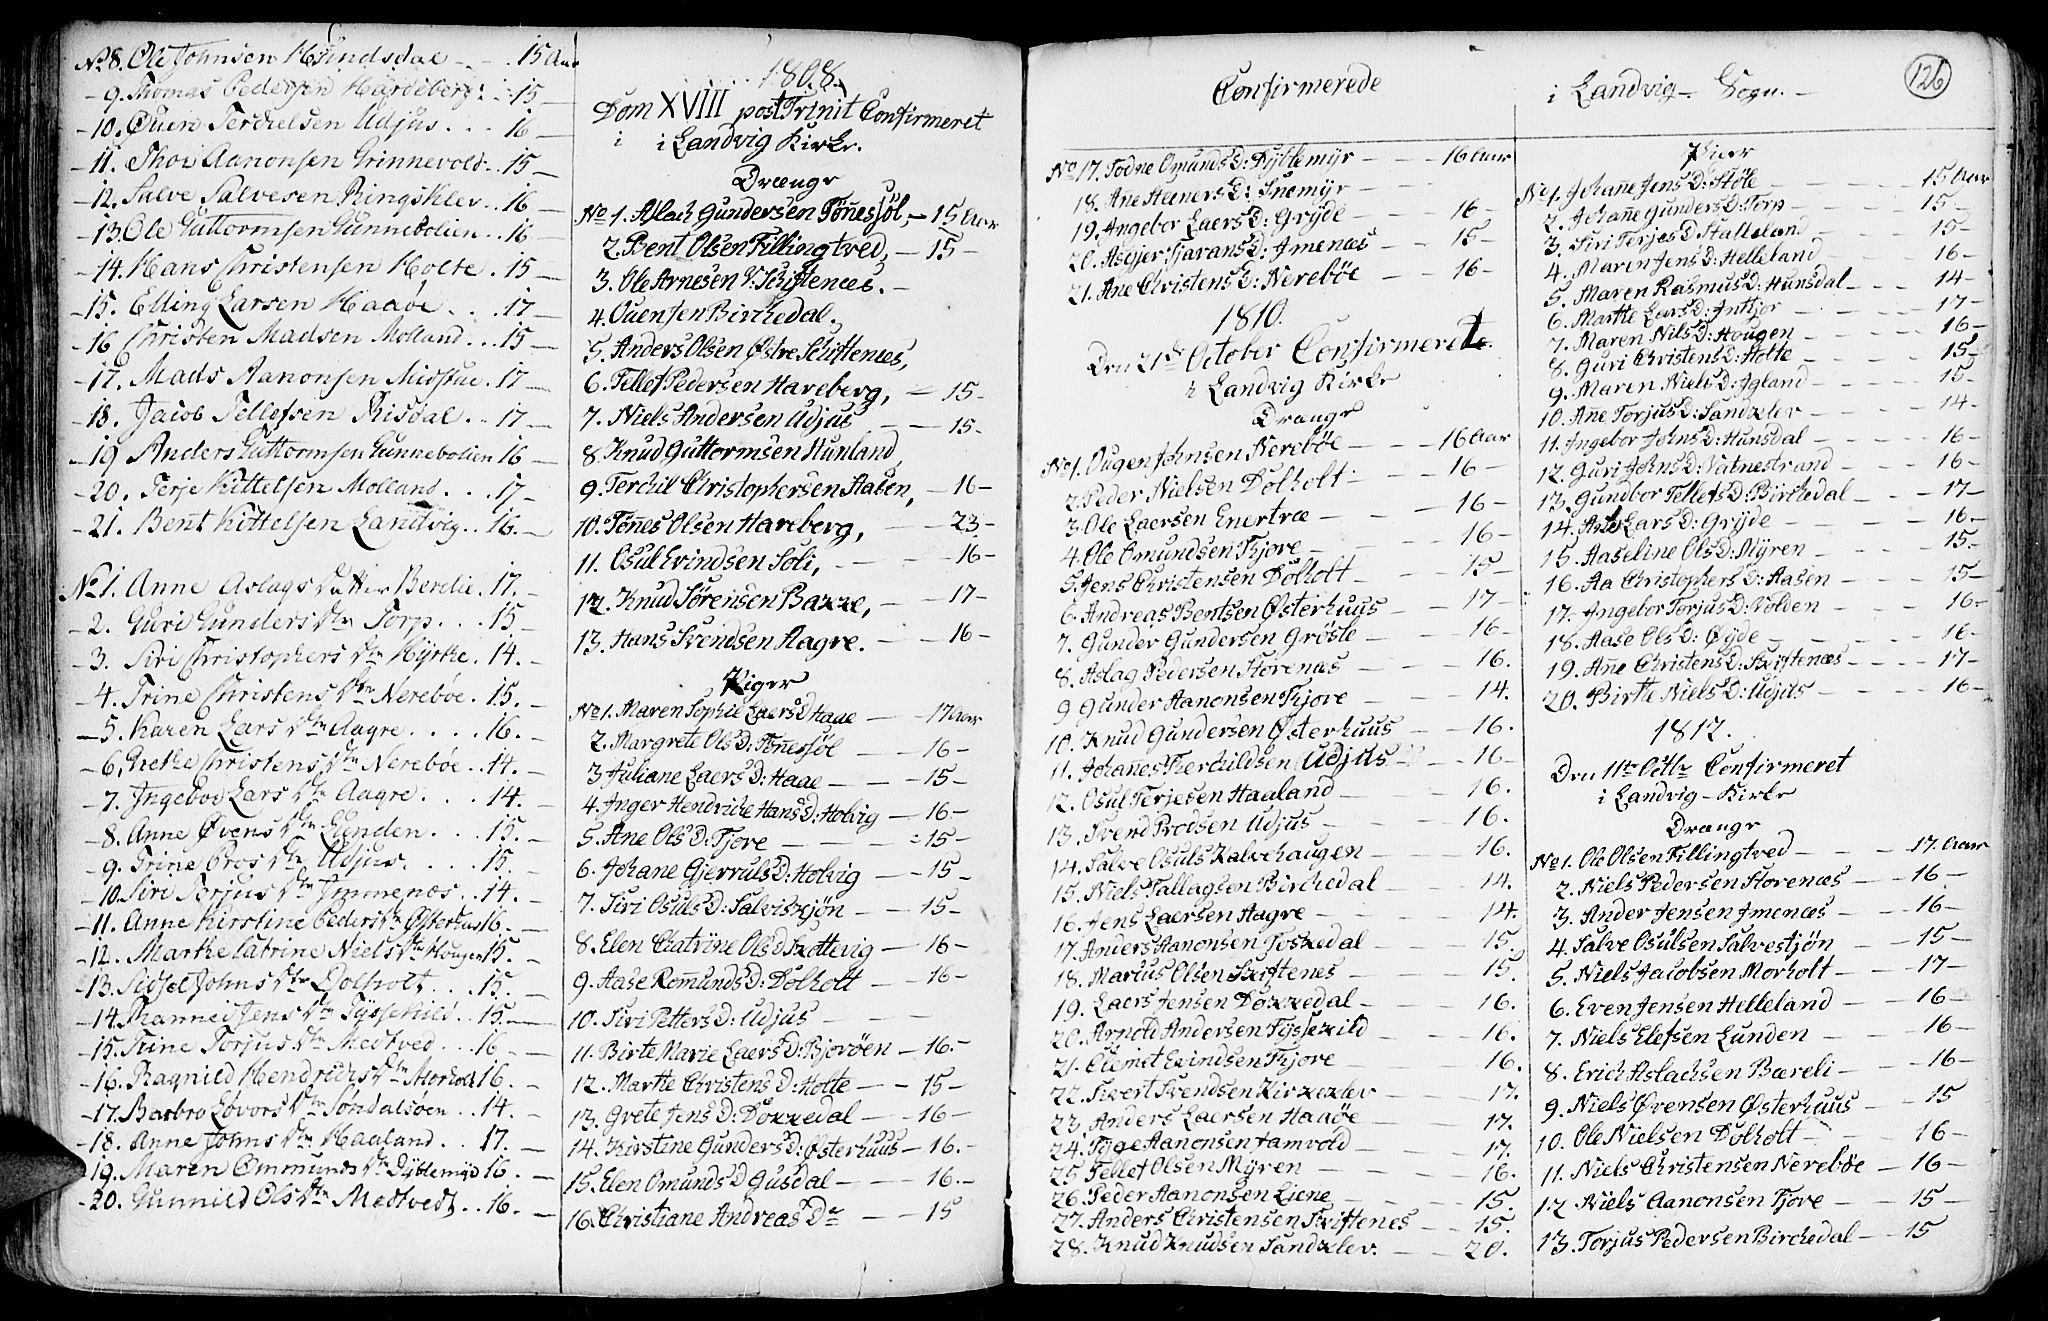 No 8. Ole Johnsen Hundsdal - - . 15 Aar
- 9. Thomas Pedersen Hardeberg . . 15 -
- 10. Øuen Terchelsen Udjus . . . 16 -
- 11. Thor Aanonsen Grinnevold . . 15 -
- 12. Salve Salvesen Ringsklev . . 16 -
- 13. Ole Guttormsen Gunnebolien . . 16 -
- 14. Hans Christensen Holte . 15 -
- 15. Elling Larsen Haaøe . . . 17 -
- 16 Christen Madsen Molland . . . 15 -
- 17. Mads Aanonsen Midstue . 17 -
- 18. Jacob Tellefsen Risdal . . 17 -
- 19 Anders Guttormsen Gunnebolien 16 -
- 20. Terje Kittelsen Molland . . . 17 -
- 21. Bent Kittelsen Landvig . . 16. -
No 1. Anne Aslags Datter Berelie . 17. -
- 2. Guri Gunders Dtr Torp . . . 15 -
- 3. Siri Christophers Dtr Hyrke . 14. -
- 4. Trine Christens Dtr Nerebøe . 15. -
- 5. Karen Lars Dtr Aagre . . . . 16. -
- 6. Grethe Christens Dtr Nerebøe . . 14. -
- 7. Ingebor Lars Dtr Aagre . . . 14. -
- 8. Anne Øvens Dtr Lunden . . . 15. -
- 9. Trine Bros Dtr Udjus . . . . 15. -
- 10. Siri Torjus Dtr Immenæs . . 14. -
- 11. Anne Kirstine Peders Dtr Østerhus 16. -
- 12. Marthe Catrine Niels Dtr Hougen 15. -
- 13. Sidsel Johns Dtr Dolholt . . . 15. -
- 14. Ranneid Jens Dtr Tyssekild . 15. -
- 15. Trine Torjus Dtr Medtved . . 16 -
- 16. Ragnild Hendrichs Dtr Morholt 16. -
- 17. Barbro Løvors Dtr Søndalsøen . . 14. -
- 18. Anne Johns Dtr Haaland . . 17. -
- 19. Maren Ommunds Dtr Dyblemyr 16. -
- 20. Gunnild Ols Dtr Medtvedt . . 16. -
1808.
Dom XVIII post Trinit Confirmeret
i i Landvig Kirke.
Drænge
No 1. Aslach Gundersen Tönnesöl, - 15 Aar
2. Bent Olsen Fillingtved, - 15 -
3. Ole Arnesen V: Skiftenes. -
4. Ouensen Birchedal,
5. Anders Olsen Østre Skiftenæs,
6. Tellef Pedersen Hareberg, - 15 -
7. Niels Andersen Udjus - - 15 -
8. Knud Guttormsen Hunland,
9. Terchil Christophersen Aasen, - 16 -
10. Tönnes Olsen Hareberg, - - 23 -
11. Osul Evindsen Soli, - - - 16 -
12. Knud Sørensen Bakke, - - 17 -
13. Hans Svendsen Aagre. - - 16 -
Piger
No 1. Maren Sophie Laers D Haae - - 17 Aar
2. Margrete Ols D: Tönnesöl - - 16 -
3 Juliane Laers D: Haae - - - 15 -
4. Inger Hendriche Hans D: Holvig - 16 -
5. Ane Ols D: Fjore - - - - 15 -
6. Johane Gjerruls D: Holvig - - 15 -
7. Siri Osuls D: Salviskjøn - - 15 -
8. Elen Chatrine Ols D Kottevig - 16 -
9. Aase Romunds D: Dolholt - 16 -
10. Siri Petters D: Udjus - - -
11. Birte Marie Laers D: Bjorøen - 16. -
12. Marthe Christens D: Holte - - 15 -
13. Grete Jens D: Dokkedal - - 16 -
14. Kirstine Gunders D: Østerhuus - 16. -
15. Elen Omunds D Gusdal - - 16. -
16. Christiane Andreas Dr - - 15
Confirmerede i Landvig - Sogn. -
126
No 17. Todne Omunds D: Dyblemyr - - - 16 Aar
18. Ane Steeners D: Snemyr - - -
19. Angebor Laers D: Gryde - - - 16 -
20. Asgjer Tarans D: Imenæs - - 15 -
21. Ane Christens D: Nerebøe - - 16 -
1810.
Den 21de October Confirmerete.
i Landvig Kirke
Drænge
No 1. Ougen Johnsen Nerebøe - - - 16 Aar
2. Peder Nielsen Dolholt - - - 16 -
3. Ole Laersen Enertræ - - - 16 -
4. Ole Omundsen Fjore - - - 16 -
5. Jens Christensen Dolholt - - - 15 -
6. Andreas Bentsen Østerhuus - - 17 -
7. Gunder Gundersen Grösle - - 16 -
8. Aslag Pedersen Storenæs - - 16.
9 Gunder Aanonsen Fjore - - - 14.
10. Knud Gundersen Østerhuus - - 16.
11. Johanes Therchildsen Udjus - - 16 -
12. Osul Terjesen Haaland - - - 16.
13. Svend Brodsen Udjus - - - 16.
14. Salve Osuls Kalvehaugen - - 16.
15. Niels Tallagsen Birchedal - - 14.
16. Jens Laersen Aagre - - - 14.
17. Anders Aanonsen Toskedal - - 15.
18. Marius Olsen Skiftenes - - 15.
19. Laers Jensen Dokkedal - - - 16.
20. Arnold Andersen Tyssekild - - 16.
21. Clemet Evindsen Fjore - - 16.
22. Sivert Svendsen Kirkeklev - - 17.
23. Anders Laersen Haaøe - - - 17.
24. Tyge Aanonsen Jamvold - - - 17.
25 Tellef Olsen Myren - - - 16.
26. Peder Aanonsen Liene - - - 15.
27. Anders Christensen Skiftenes - - 15.
28. Knud Knudsen Sandklev. - - 20.
Piger
No 1. Johane Jens D: Støle - - - 15 Aar
2. Johane Gunders D: Torp - - - 15 -
3. Siri Terjes D Stalleland - - 15 -
4. Maren Jens D: Helleland - - 16 -
5. Maren Rasmus D: Hunsdal - - 14 -
6. Marthe Lars D: Inthjor - - - 17 -
7. Maren Nils D: Hougen - - - 16 -
8. Guri Christens D: Holte - - - 15 -
9. Maren Niels D: Igland - - - 15 -
10. Ane Torjus D: Sandklev - - - 14 -
11. Ingebor Johns D: Hunsdal - - - 16 -
12. Guri Johns D: Vatnestrand - - 16 -
13. Gundbor Tellefs D: Birchedal - - 17 -
14. Lars D: Gryde - - - 16. -
15. Aaseline Ols D: Myren - - - 15 -
16. Aa Christophers D: Aasen - - - 15 -
17. Angebor Torjus D: Volden - - 16 -
18. Aase Ols D: Øyde - - - 16 -
19. Ane Christens D: Skiftenæs - - - 17 -
20. Birthe Niels D: Udjus - - - 16 -
1812.
Den 11te Octbr Confirmeret
i Landvig - Kirke
Drænge
No 1. Ole Olsen Fillingtved - - - 17. Aar
2. Niels Pedersen Storenæs - - 16 -
3. Ander Jensen Imenæs - - 16 -
4. Salve Osulsen Salvestjøn - - 15 -
5. Niels Jacobsen Morholt - - 17 -
6. Even Jensen Helleland - - 16 -
7. Niels Elefsen Lunden - - 16 -
8. Erich Aslachsen Bæreli - - 16 -
9. Niels Øvensen Østerhuus - - 15
10. Ole Nielsen Dolholt - - - 16 -
11. Niels Christensen Nerebøe - 16 -
12 Niels Aanonsen Fjore - - 15 -
13. Torjus Pedersen Birchedal - - 15